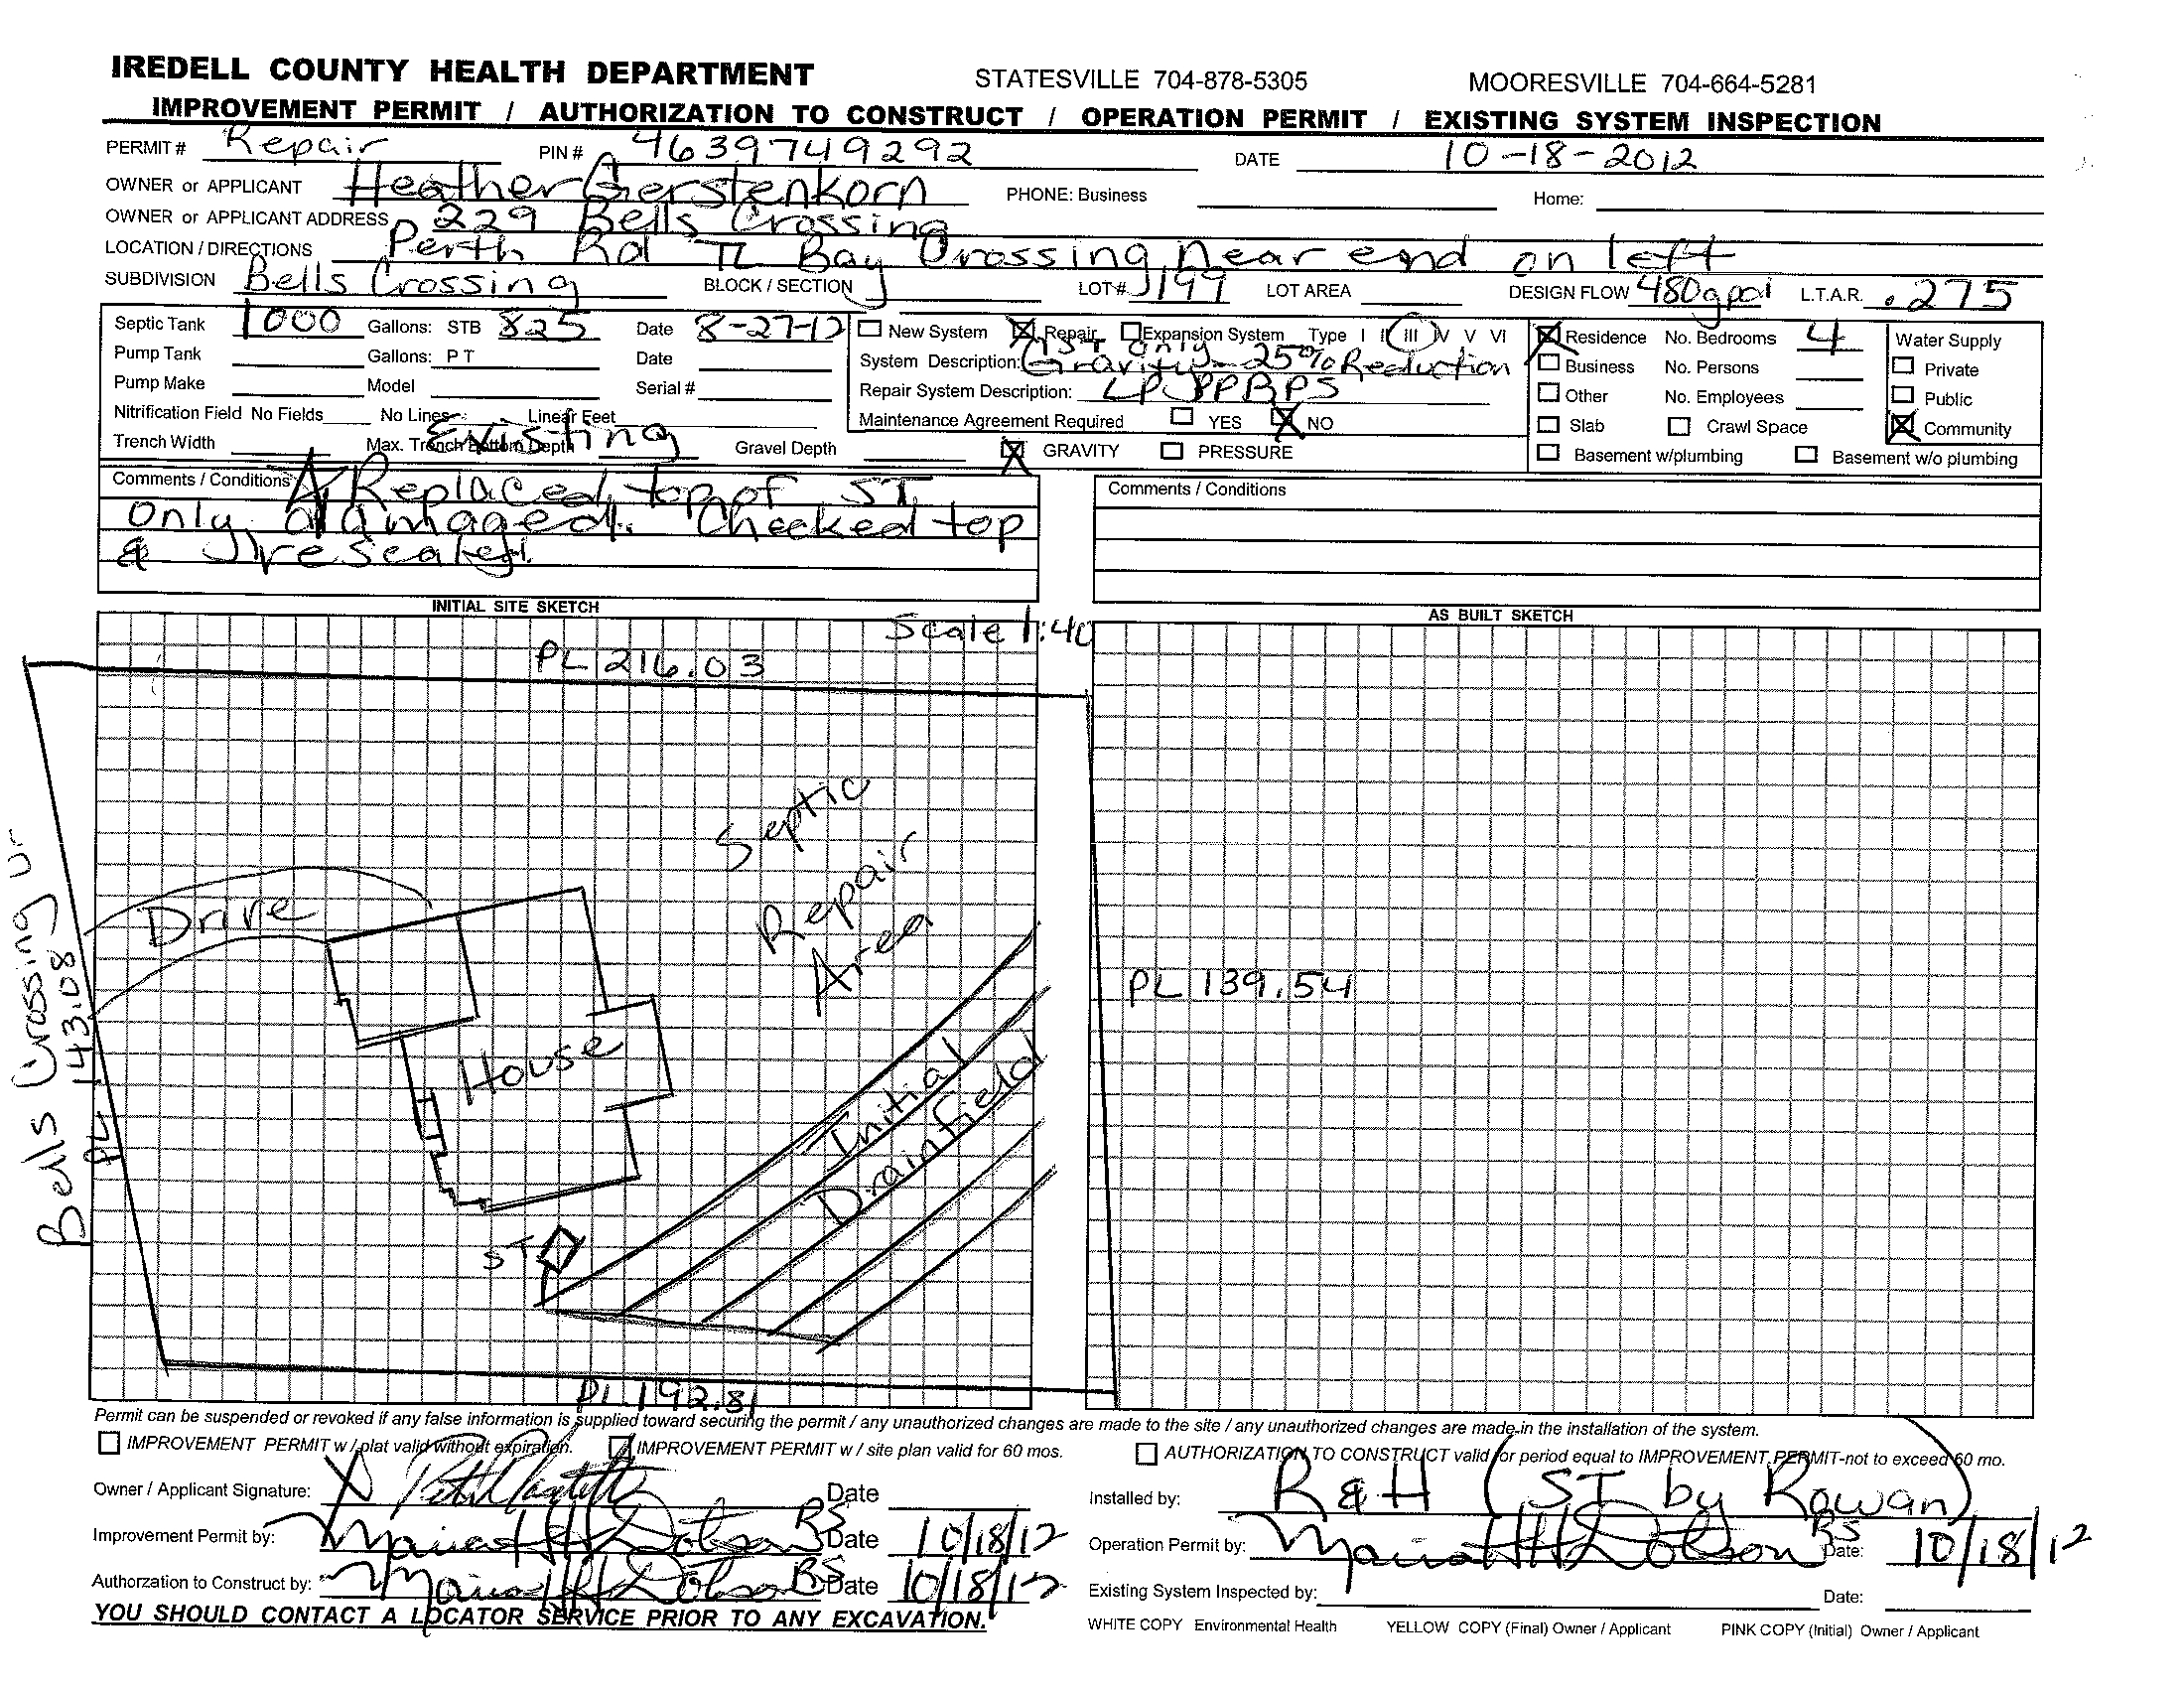 IREDELL COUNTY HEALTH DEPARTMENT STATESVILLE 704-878-5305 MOORESVILLE 704-664-5281
IMPROVEMENT PERMIT / AUTHORIZATION TO CONSTRUCT / OPERATION PERMIT / EXISTING SYSTEM INSPECTION
PERMIT # Repair PIN # 4639749292 DATE 10-18-2012
OWNER or APPLICANT Heather Gerstenkorn PHONE: Business Home:
OWNER or APPLICANT ADDRESS 229 Bells Crossing
LOCATION / DIRECTIONS Perth Rd TL Bay Crossing near end on left
SUBDIVISION Bells Crossing BLOCK / SECTION LOT# 199 LOT AREA DESIGN FLOW 480gpd L.T.A.R. .275
Septic Tank 1000 Gallons: STB 825 Date 8-27-12 New System Repair Expansion System Type I II III IV V VI Residence No. Bedrooms 4 Water Supply
ST only
Pump Tank Gallons: PT Date System Description: Gravity - 25% Reduction Business No. Persons Private
Pump Make Model Serial # Repair System Description: LPP PPBPS Other No. Employees Public
Nitrification Field No Fields No Lines Linear Feet Maintenance Agreement Required YES NO Slab Crawl Space Community
Existing
Trench Width Max. Trench Bottom Depth Gravel Depth GRAVITY PRESSURE Basement w/plumbing Basement w/o plumbing
Comments / Conditions Replaced top of ST Comments / Conditions
only damaged. Checked top
& resealed.
INITIAL SITE SKETCH AS BUILT SKETCH
Scale 1:40
PL 216.03
Septic
Repair
Area
Drive
Bells Crossing Dr
PL 143.08
PL 139.54
House
Initial
Drainfield
ST
PL 192.81
Permit can be suspended or revoked if any false information is supplied toward securing the permit / any unauthorized changes are made to the site / any unauthorized changes are made in the installation of the system.
IMPROVEMENT PERMIT w / plat valid without expiration. IMPROVEMENT PERMIT w / site plan valid for 60 mos. AUTHORIZATION TO CONSTRUCT valid for period equal to IMPROVEMENT PERMIT-not to exceed 60 mo.
Owner / Applicant Signature: X Date Installed by: R & H (ST by Rowan)
Improvement Permit by: H Dotson RS Date 10/18/12 Operation Permit by: H Dotson RS Date: 10/18/12
Authorzation to Construct by: H Dotson RS Date 10/18/12 Existing System Inspected by: Date:
YOU SHOULD CONTACT A LOCATOR SERVICE PRIOR TO ANY EXCAVATION.
WHITE COPY Environmental Health YELLOW COPY (Final) Owner / Applicant PINK COPY (Initial) Owner / Applicant